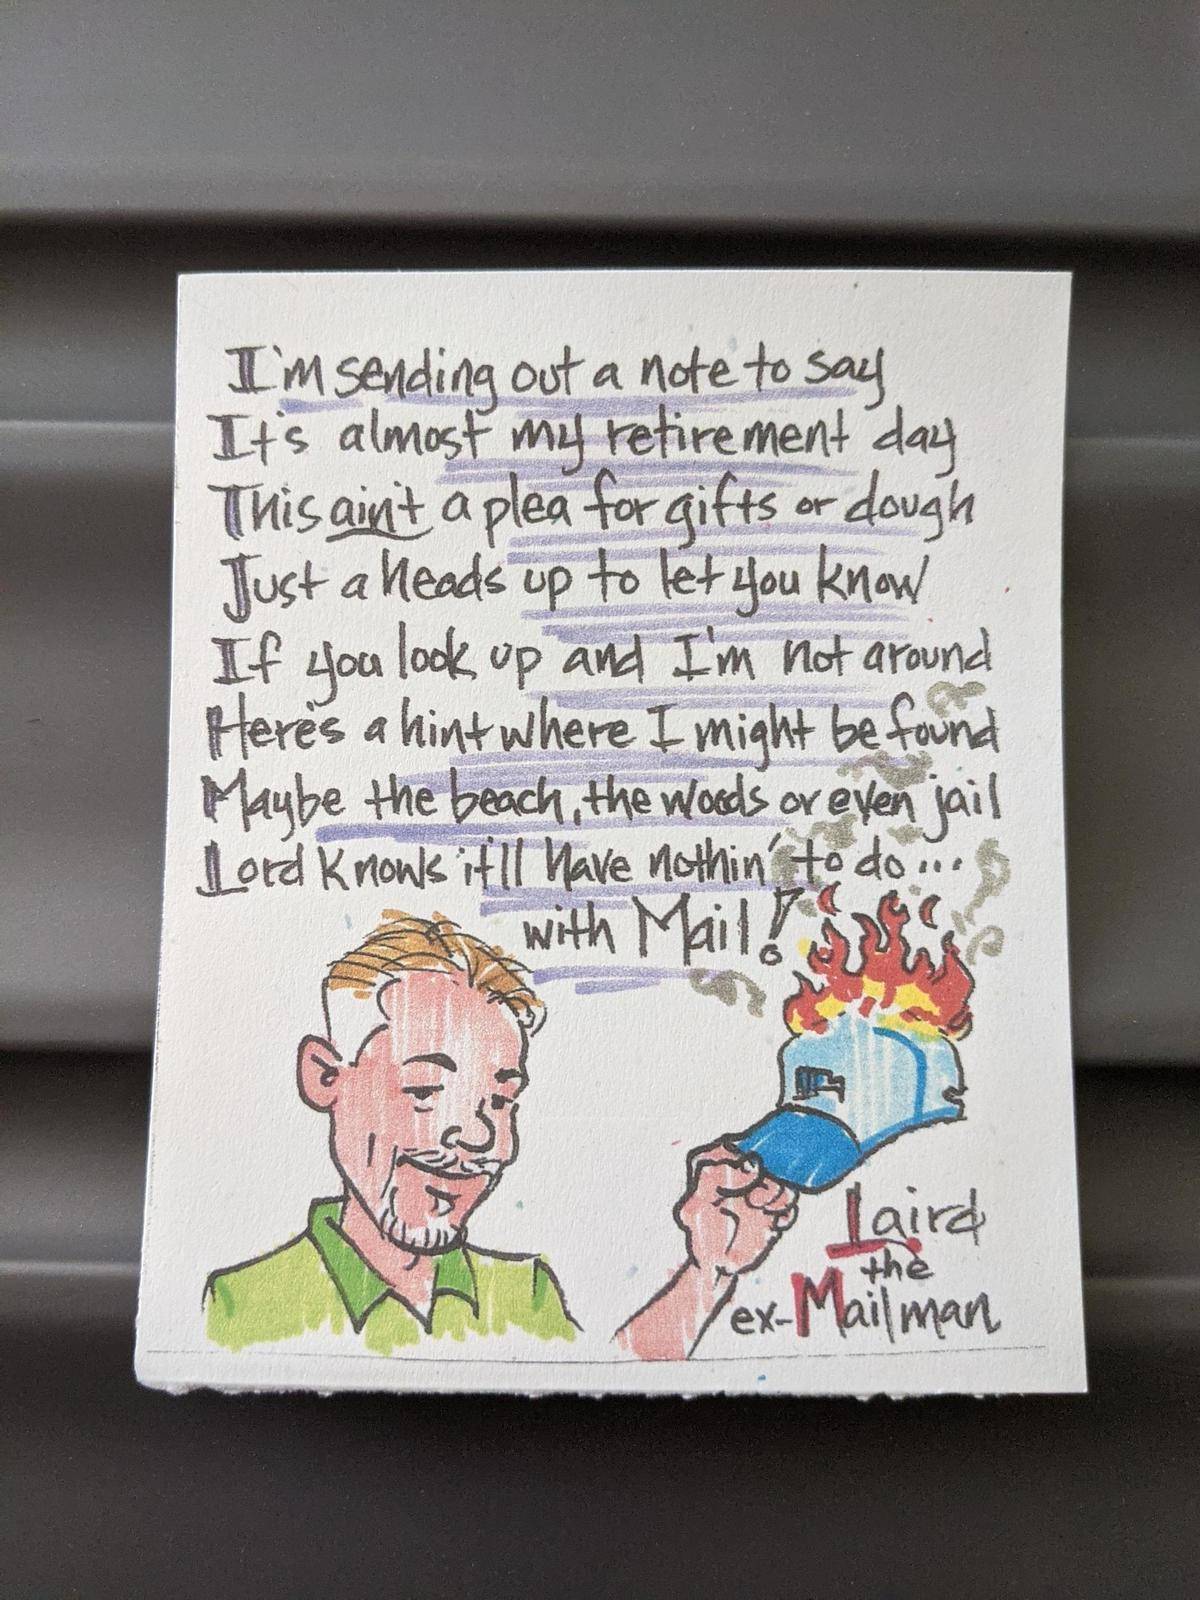 I'm sending out a note to say
It's almost my retirement day
This ain't a plea for gifts or dough
Just a heads up to let you know
If you look up and I'm not around
Here's a hint where I might be found
Maybe the beach, the woods or even jail
Lord knows it'll have nothin' to do...
with Mail!
Laird
the
ex-Mailman